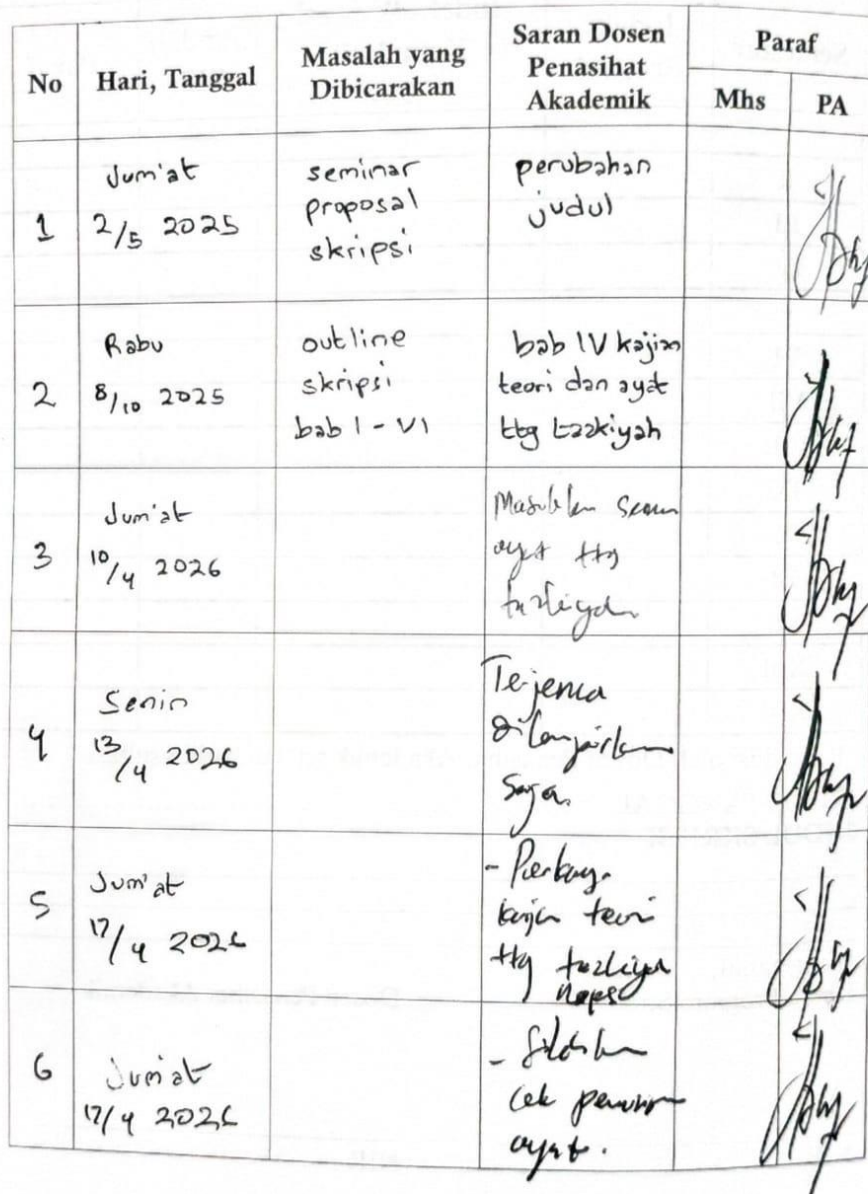 No
Hari, Tanggal
Masalah yang
Dibicarakan
Saran Dosen
Penasihat
Akademik
Paraf
Mhs
PA
1
Jum'at
2/5 2025
seminar
proposal
skripsi
perubahan
judul
2
Rabu
8/10 2025
outline
skripsi
bab I - VI
bab IV kajian
teori dan ayat
ttg tazkiyah
3
Jum'at
10/4 2026
ayat ttg
4
Senin
13/4 2026
dilampirkan
saja.
5
Jum'at
17/4 2026
- Perkaya
kajian teori
ttg
6
Jum'at
17/4 2026
cek
ayat.